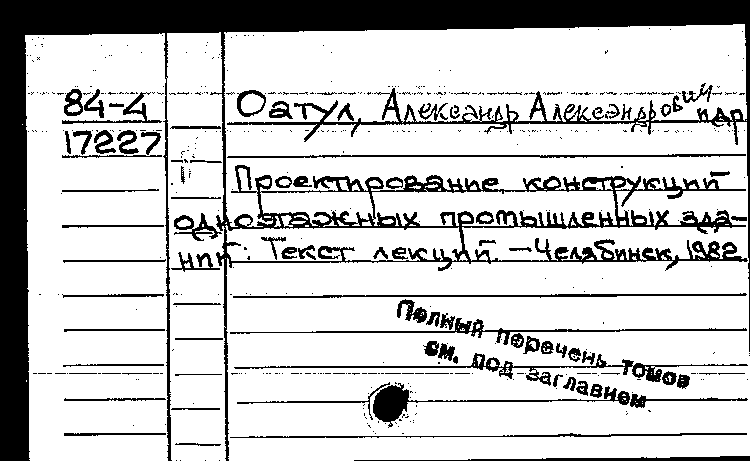 84-4
17227
Оатул, Александр Александрович
и др
Проектирование конструкций
одноэтажных промышленных зда-
ний: Текст лекций. — Челябинск, 1982.
Полный перечень томов
см. под заглавием